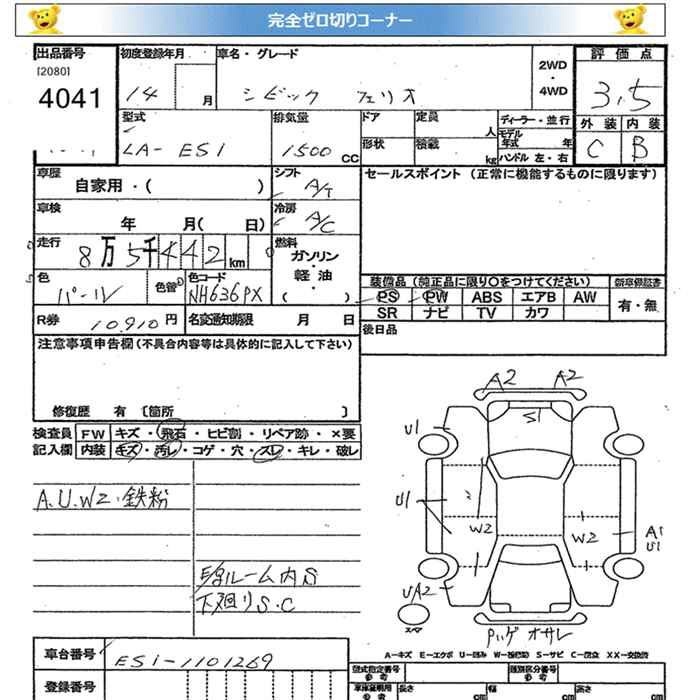 完全ゼロ切りコーナー
出品番号 初度登録年月 車名・グレード 2WD・4WD 評価点
[2080]
4041 14 月 シビック フェリオ 3,5
型式 排気量 ドア 定員 人 ディーラー・並行 外装 内装
LA-ES1 1500 cc 形状 積載 kg モデル年式 年 ハンドル 左・右 C B
車歴 自家用・( ) シフト A/T セールスポイント(正常に機能するものに限ります)
車検 年 月( 日) 冷房 A/C
走行 8万5千442km 燃料 ガソリン・軽油・( )
色 パール 色替 色コード NH636PX
装備品(純正品に限り○をつけてください) 新車保証書
PS PW ABS エアB AW 有・無
SR ナビ TV カワ
R券 10,910円 名変通知期限 月 日 後日品
注意事項申告欄(不具合内容等は具体的に記入して下さい)
修復歴 有 〔箇所 〕
検査員 FW キズ・飛石・ヒビ割・リペア跡・×要
記入欄 内装 キズ・汚レ・コゲ・穴・スレ・キレ・破レ
A.U.W2.鉄粉
ルーム内S
下廻りS.C
A2 A2
S1
U1
U1
W2 W2 A1
U1
UA2
スペア
Pハゲ オサレ
A-キズ E-エクボ U-凹み S-サビ C-腐食 XX-交換済
車台番号 ES1-1101269
登録番号
型式指定番号 類別区分番号
長さ cm 幅 cm 高さ cm